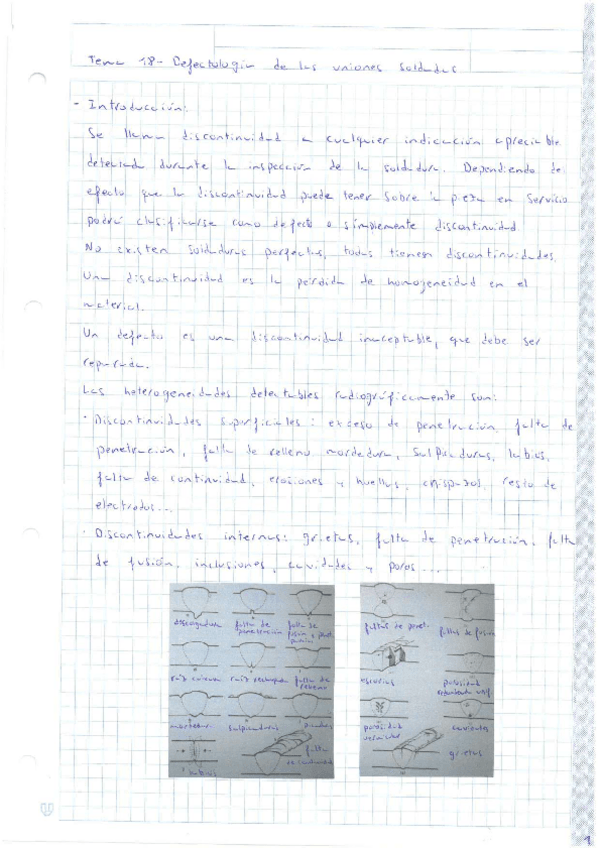 Tema 18- Defectología de las uniones soldadas
- Introducción:
Se llama discontinuidad a cualquier indicación apreciable
detectada durante la inspección de la soldadura. Dependiendo del
efecto que la discontinuidad puede tener sobre la pieza en servicio
podrá clasificarse como defecto o simplemente discontinuidad.
No existen soldaduras perfectas, todas tienen discontinuidades.
Una discontinuidad es la pérdida de homogeneidad en el
material.
Un defecto es una discontinuidad inaceptable, que debe ser
reparada.
Las heterogeneidades detectables radiográficamente son:
· Discontinuidades superficiales: exceso de penetración, falta de
penetración, falta de relleno mordedura, salpicaduras, labios,
falta de continuidad, erosiones y huellas, chispazos, resto de
electrodos...
· Discontinuidades internas: grietas, falta de penetración, falta
de fusión, inclusiones, cavidades y poros...
descolgadura falta de penetración falta de fusión y
raíz cóncava raíz rechupada falta de relleno
mordedura salpicaduras
labios falta de continuidad
faltas de penet. faltas de fusión
escorias porosidad
porosidad vermicular cavidades
grietas
1